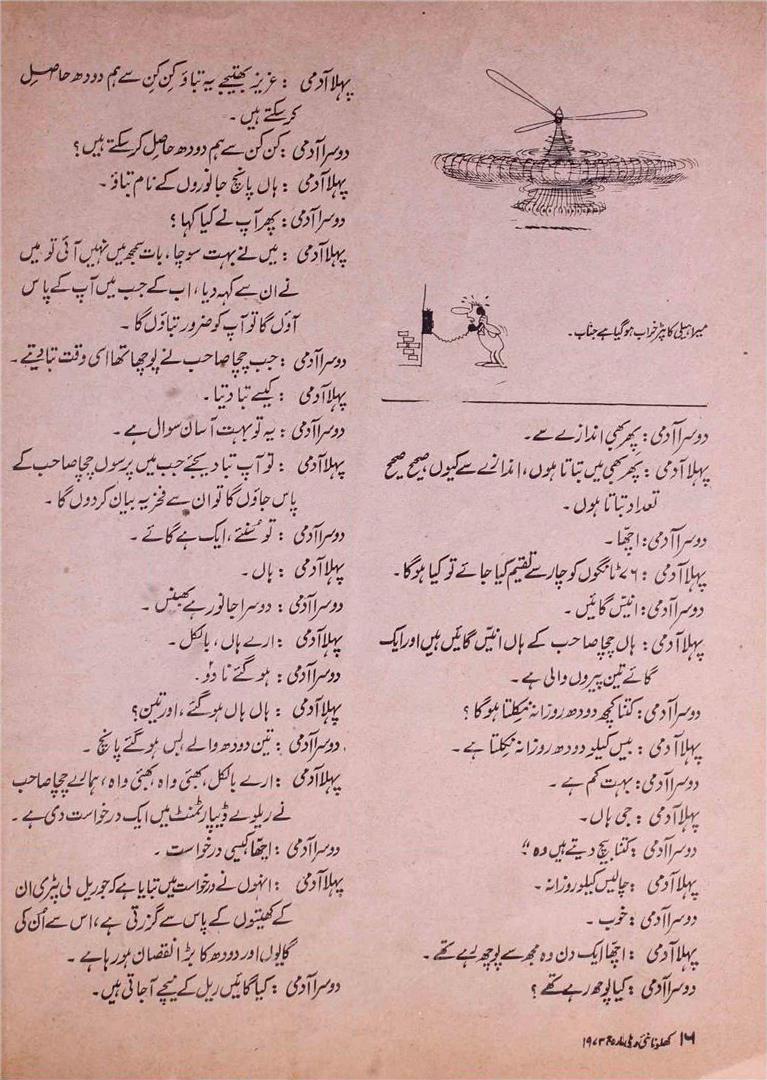 میرا ہیلی کاپٹر خراب ہوگیا ہے جناب۔
دوسرا آدمی : پھر بھی اندازے سے۔
پہلا آدمی : پھر بھی میں بتاتا ہوں، اندازے سے کیوں، صحیح صحیح
تعداد بتاتا ہوں۔
دوسرا آدمی : اچھا۔
پہلا آدمی : ۷۶ ٹانگوں کو چار سے تقسیم کیا جائے تو کیا ہوگا۔
دوسرا آدمی : انیّس گائیں۔
پہلا آدمی : ہاں چچا صاحب کے ہاں انیّس گائیں ہیں اور ایک
گائے تین پیروں والی ہے۔
دوسرا آدمی : کتنا کچھ دودھ روزانہ نکلتا ہوگا ؟
پہلا آدمی : بیس کیلو دودھ روزانہ نکلتا ہے۔
دوسرا آدمی : بہت کم ہے۔
پہلا آدمی : جی ہاں۔
دوسرا آدمی : کتنا بیچ دیتے ہیں وہ ؟
پہلا آدمی : چالیس کیلو روزانہ۔
دوسرا آدمی : خوب۔
پہلا آدمی : اچھا ایک دن وہ مجھ سے پوچھ رہے تھے۔
دوسرا آدمی : کیا پوچھ رہے تھے ؟
پہلا آدمی : عزیز بھتیجے یہ بتاؤ کن کن سے ہم دودھ حاصل
کرسکتے ہیں۔
دوسرا آدمی : کن کن سے ہم دودھ حاصل کرسکتے ہیں؟
پہلا آدمی : ہاں پانچ جانوروں کے نام بتاؤ۔
دوسرا آدمی : پھر آپ نے کیا کہا ؟
پہلا آدمی : میں نے بہت سوچا، بات سمجھ میں نہیں آئی تو میں
نے ان سے کہہ دیا، اب کے جب میں آپ کے پاس
آؤں گا تو آپ کو ضرور بتاؤں گا۔
دوسرا آدمی : جب چچا صاحب نے پوچھا تھا اسی وقت بتا دیتے۔
پہلا آدمی : کیسے بتا دیتا۔
دوسرا آدمی : یہ تو بہت آسان سوال ہے۔
پہلا آدمی : تو آپ بتا دیجئے جب میں پرسوں چچا صاحب کے
پاس جاؤں گا تو ان سے فخریہ بیان کردوں گا۔
دوسرا آدمی : تو سُنئے، ایک ہے گائے۔
پہلا آدمی : ہاں۔
دوسرا آدمی : دوسرا جانور ہے بھینس۔
پہلا آدمی : ارے ہاں، بالکل۔
دوسرا آدمی : ہوگئے نا دو۔
پہلا آدمی : ہاں ہاں ہوگئے، اور تین؟
دوسرا آدمی : تین دودھ والے بس ہوگئے پانچ۔
پہلا آدمی : ارے بالکل، بھئی واہ، بھئی واہ، ہمارے چچا صاحب
نے ریلوے ڈیپارٹمنٹ میں ایک درخواست دی ہے۔
دوسرا آدمی : اچھا کیسی درخواست۔
پہلا آدمی : انہوں نے درخواست میں بتایا ہے کہ جو ریل کی پٹری ان
کے کھیتوں کے پاس سے گزرتی ہے، اس سے اُن کی
گایوں اور دودھ کا بڑا نقصان ہو رہا ہے۔
دوسرا آدمی : کیا گائیں ریل کے نیچے آجاتی ہیں۔
۱۶ کھلونا نئی دہلی مارچ ۱۹۷۳